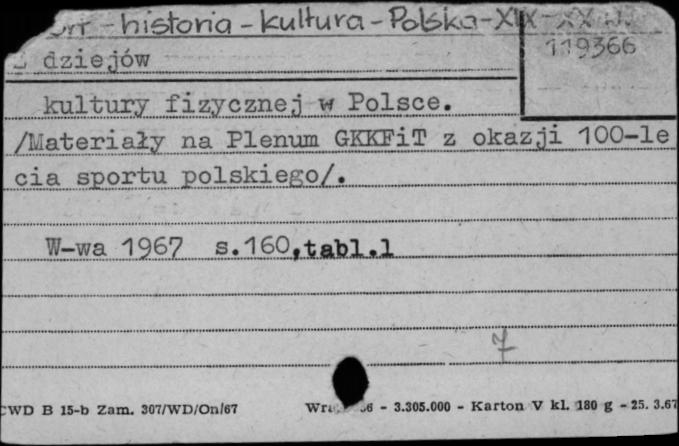 - historia - kultura - Polska - XIX - XX w.
119366
dziejów
kultury fizycznej w Polsce.
/Materiały na Plenum GKKFiT z okazji 100-le
cia sportu polskiego/.
W-wa 1967 s.160,tabl.1
7
CWD B 15-b Zam. 307/WD/On/67
- 3.305.000 - Karton V kl. 180 g - 25. 3.67